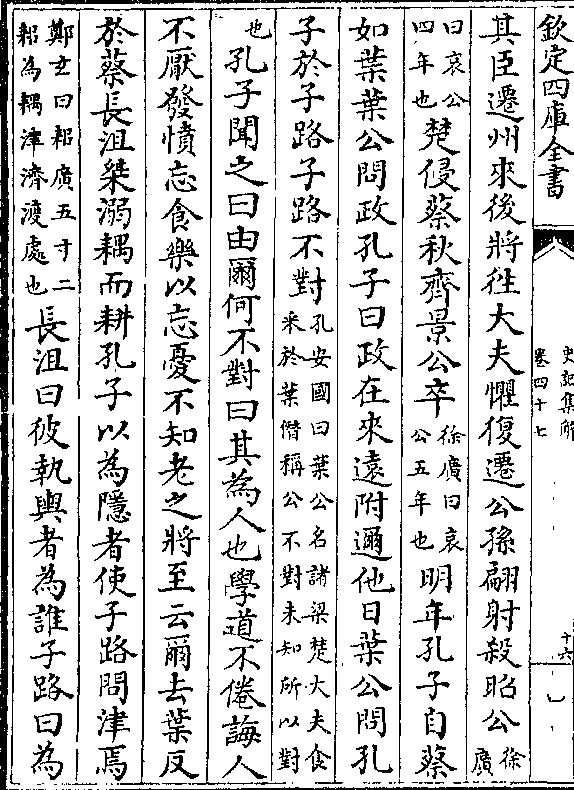 欽定四庫全書
史記集解
卷四十七
十六
其臣遷州來後將徃大夫懼復遷公孫翩射殺昭公徐廣
曰哀公四年也楚侵蔡秋齊景公卒徐廣曰哀公五年也明年孔子自蔡
如葉葉公問政孔子曰政在來逺附邇他日葉公問孔
子於子路子路不對孔安國曰葉公名諸梁楚大夫食采於葉僭稱公不對未知所以對
也孔子聞之曰由爾何不對曰其為人也學道不倦誨人
不厭發憤忘食樂以忘憂不知老之將至云爾去葉反
於蔡長沮桀溺耦而耕孔子以為隱者使子路問津焉
鄭𤣥曰耜廣五寸二耜為耦津濟渡處也長沮曰彼執輿者為誰子路曰為